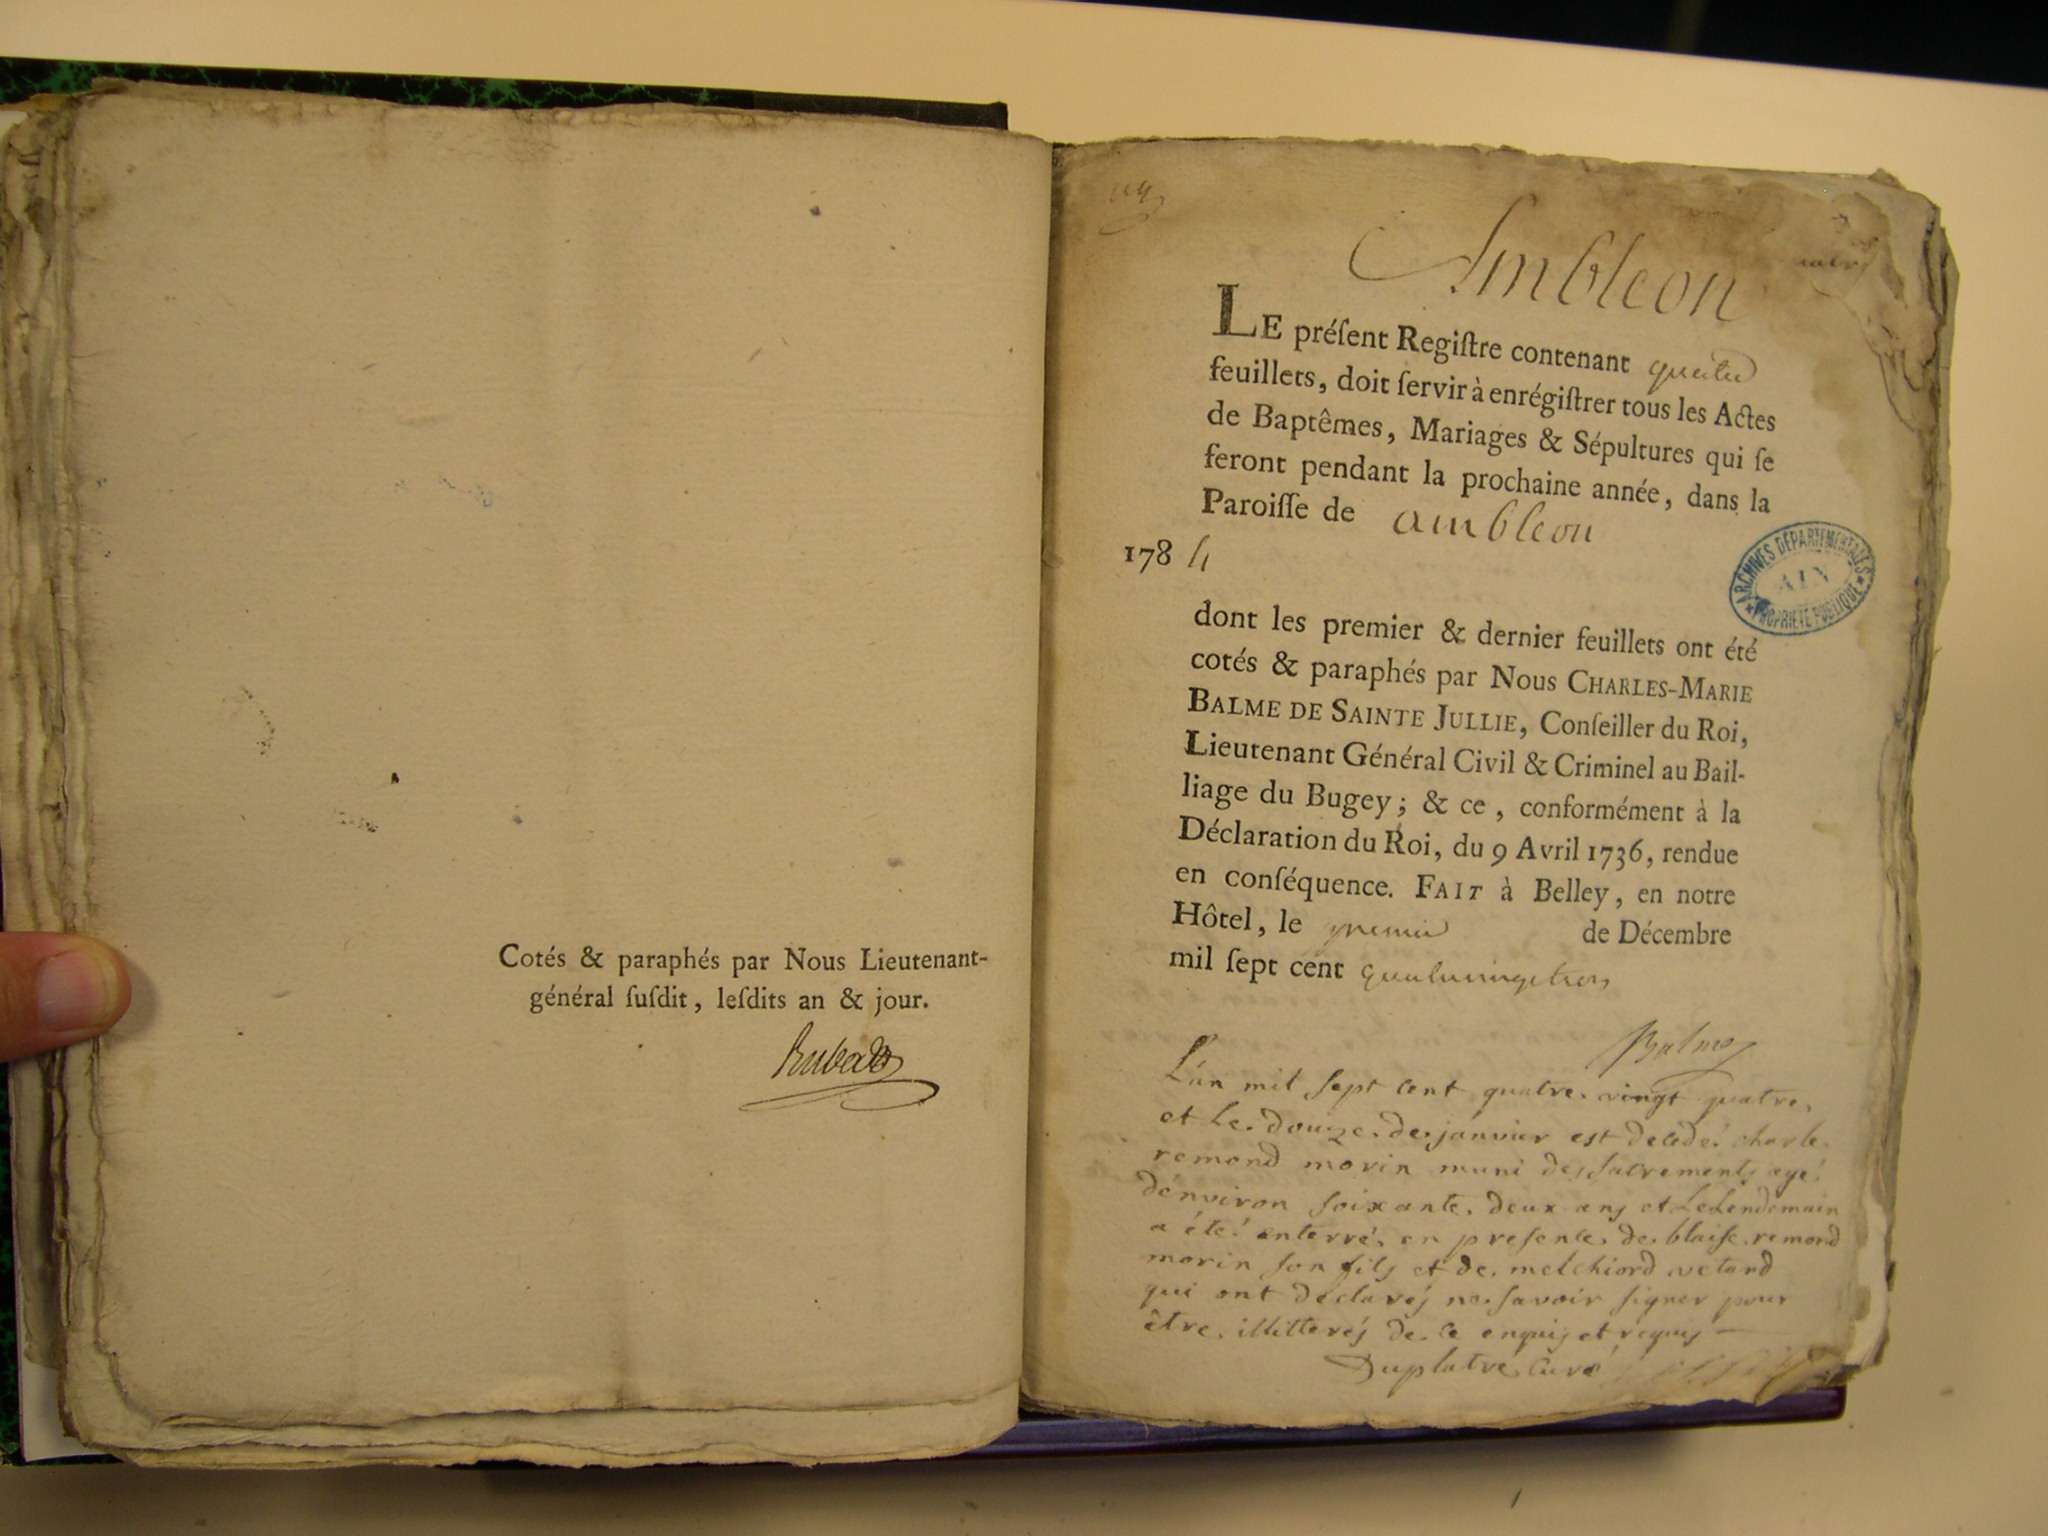 Cotés & paraphés par Nous Lieutenant-
général ſuſdit, leſdits an & jour.
Ambleon
LE préſent Regiſtre contenant quatre
feuillets, doit ſervir à enrégiſtrer tous les Actes
de Baptêmes, Mariages & Sépultures qui ſe
feront pendant la prochaine année, dans la
Paroiſſe de ambleon
1784
ARCHIVES DÉPARTEMENTALES
AIN
PROPRIÉTÉ PUBLIQUE
dont les premier & dernier feuillets ont été
cotés & paraphés par Nous CHARLES-MARIE
BALME DE SAINTE JULLIE, Conſeiller du Roi,
Lieutenant Général Civil & Criminel au Bail-
liage du Bugey; & ce, conformément à la
Déclaration du Roi, du 9 Avril 1736, rendue
en conſéquence. FAIT à Belley, en notre
Hôtel, le premier de Décembre
mil ſept cent quatrevingtrois
Balme
L'an mil sept cent quatre vingt quatre
et le douze de janvier est decedé charle
remond morin muni des sacrements agé
d'environ soixante deux ans et le lendemain
a été enterré en presence de blaise remond
morin son fils et de melchiord vetard
qui ont declarés ne savoir signer pour
être illitterés de ce enquis et requis
Duplatre curé